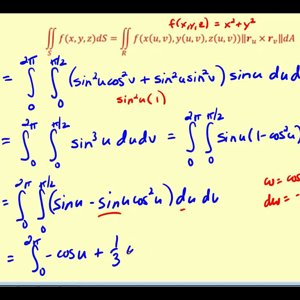 f(x,y,z) = x²+y²
∬_S f(x, y, z)dS = ∬_R f(x(u, v), y(u, v), z(u, v))‖r_u × r_v‖dA
= ∫_0^{2π} ∫_0^{π/2} (sin²u cos²v + sin²u sin²v) sinu du dv
sin²u (1)
∫_0^{2π} ∫_0^{π/2} sin³u du dv = ∫_0^{2π} ∫_0^{π/2} sinu (1-cos²u)
= ∫_0^{2π} ∫_0^{π/2} (sinu - sinu cos²u) du dv
w = cos
dw = -
= ∫_0^{2π} -cosu + 1/3